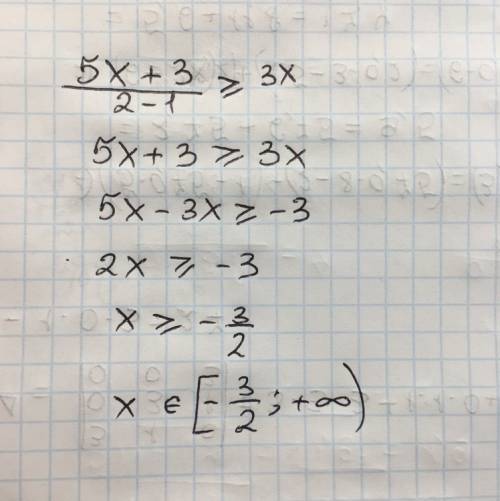 (5x + 3)/(2 - 1) ≥ 3x
5x + 3 ≥ 3x
5x - 3x ≥ -3
2x ≥ -3
x ≥ - 3/2
x ∈ [- 3/2 ; +∞)